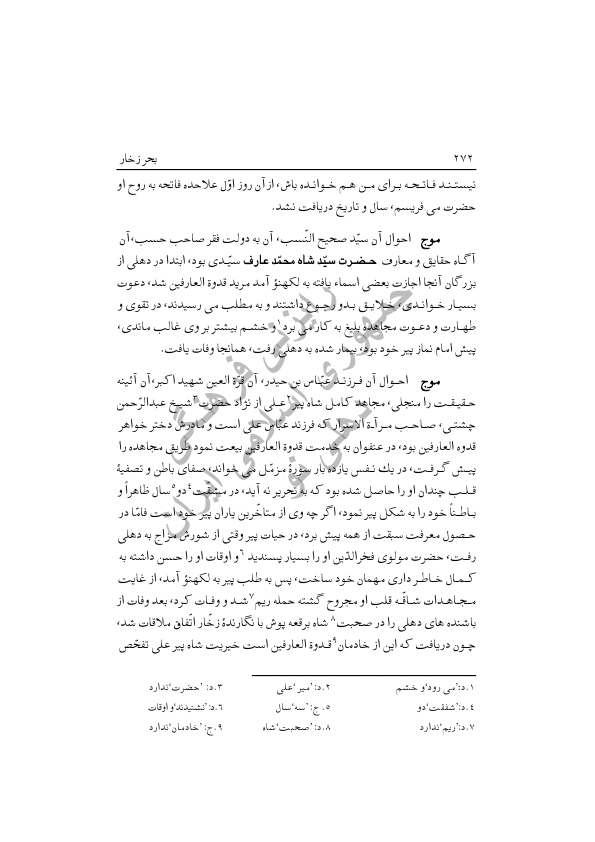 ۲۷۲ بحر زخار
نیستند فاتحه برای من هم خوانده باش، از آن روز اوّل علاحده فاتحه به روح او
حضرت می فریسم، سال و تاریخ دریافت نشد.
موج احوال آن سیّد صحیح النّسب، آن به دولت فقر صاحب حسب، آن
آگاه حقایق و معارف حضرت سیّد شاه محمّد عارف سیّدی بود، ابتدا در دهلی از
بزرگان آنجا اجازت بعضی اسماء یافته به لکهنؤ آمد مرید قدوة العارفین شد، دعوت
بسیار خواندی، خلایق بدو رجوع داشتند و به مطلب می رسیدند، در تقوی و
طهارت و دعوت مجاهدهٔ بلیغ به کار می برد۱ و خشم بیشتر بر وی غالب ماندی،
پیش امام نماز پیر خود بود، بیمار شده به دهلی رفت، همانجا وفات یافت.
موج احوال آن فرزند عبّاس بن حیدر، آن قرّة العین شهید اکبر، آن آئینه
حقیقت را منجلی، مجاهد کامل شاه پیر۲ علی از نژاد حضرت۳ شیخ عبدالرّحمن
چشتی، صاحب مرآة الاسرار که فرزند عبّاس علی است و مادرش دختر خواهر
قدوه العارفین بود، در عنفوان به خدمت قدوة العارفین بیعت نمود طریق مجاهده را
پیش گرفت، در یك نفس یازده بار سورهٔ مزمّل می خواند، صفای باطن و تصفیهٔ
قلب چندان او را حاصل شده بود که به تحریر نه آید، در مشقّت۴ دو۵ سال ظاهراً و
باطناً خود را به شکل پیر نمود، اگر چه وی از متاخّرین یاران پیر خود است فامّا در
حصول معرفت سبقت از همه پیش برد، در حیات پیر وقتی از شورش مزاج به دهلی
رفت، حضرت مولوی فخرالدّین او را بسیار پسندید۶ و اوقات او را حسن داشته به
کمال خاطر داری مهمان خود ساخت، پس به طلب پیر به لکهنؤ آمد، از غایت
مجاهدات شاقّه قلب او مجروح گشته حمله ریم۷ شد و وفات کرد، بعد وفات از
باشنده های دهلی را در صحبت۸ شاه برقعه پوش با نگارندهٔ زخّار اتّفاق ملاقات شد،
چون دریافت که این از خادمان۹ قدوة العارفین است خیریت شاه پیر علی تفحّص
۱.د:'می رود'و خشم ۲.د:'میر'علی ۳.د: 'حضرت'ندارد
۴.د:'شفقت'دو ۵. ج: 'سه'سال ۶.د:'نشنیدند'و اوقات
۷.د:'ریم'ندارد ۸.د:'صحبت'شاه ۹.ج:'خادمان'ندارد